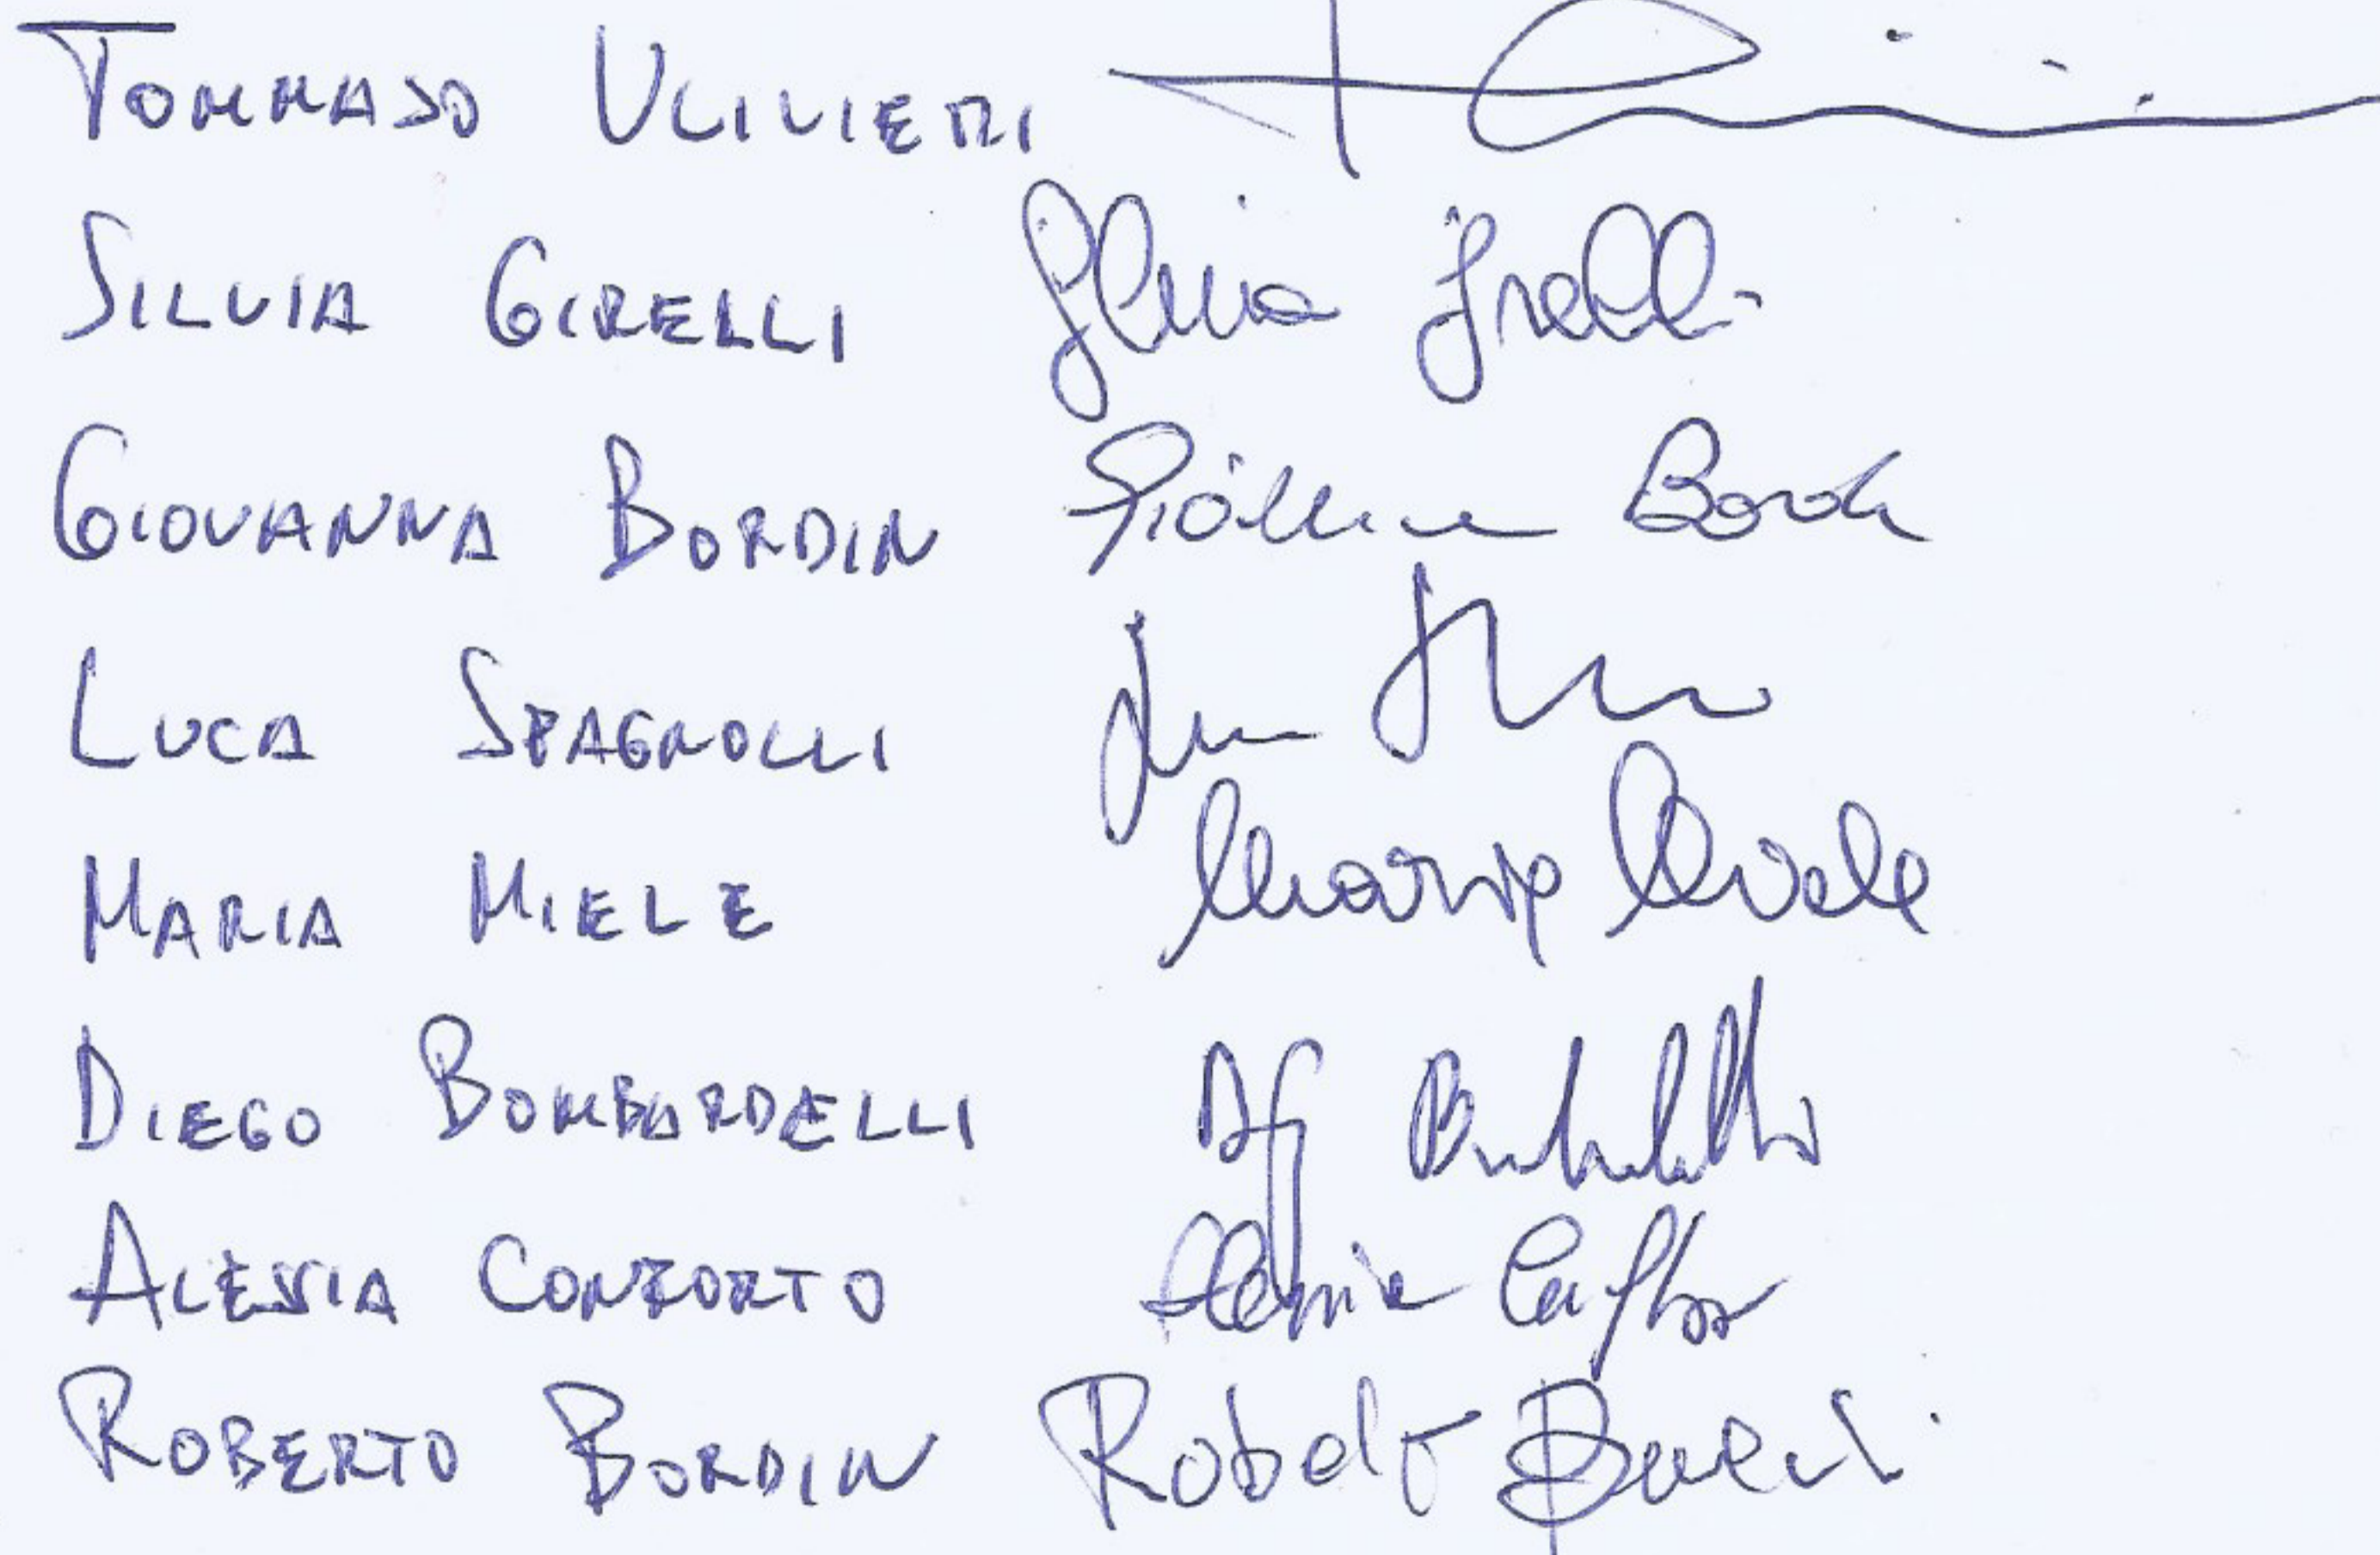 TOMMASO ULIVIERI
SILVIA GIRELLI Silvia Girelli
GIOVANNA BORDIN Giovanna Bordin
LUCA SPAGNOLLI
MARIA MIELE Maria Miele
DIEGO BOMBARDELLI
ALESSIA CONFORTO Alessia
ROBERTO BORDIN Roberto